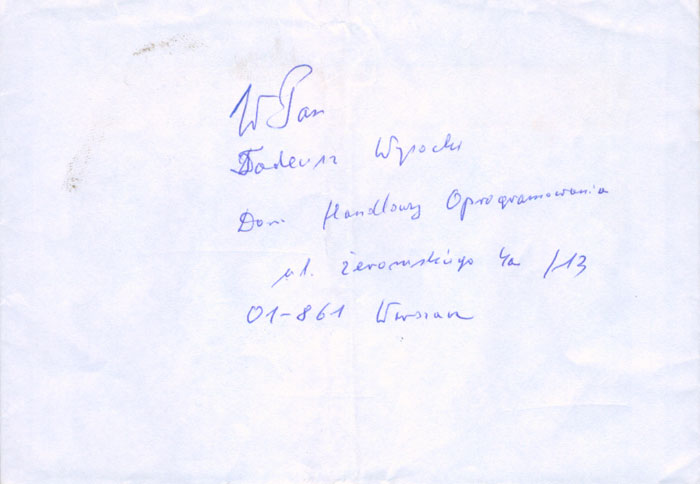 W Pan
Tadeusz Wysocki
Dom Handlowy Oprogramowania
ul. Żeromskiego 4a /13
01-861 Warszawa